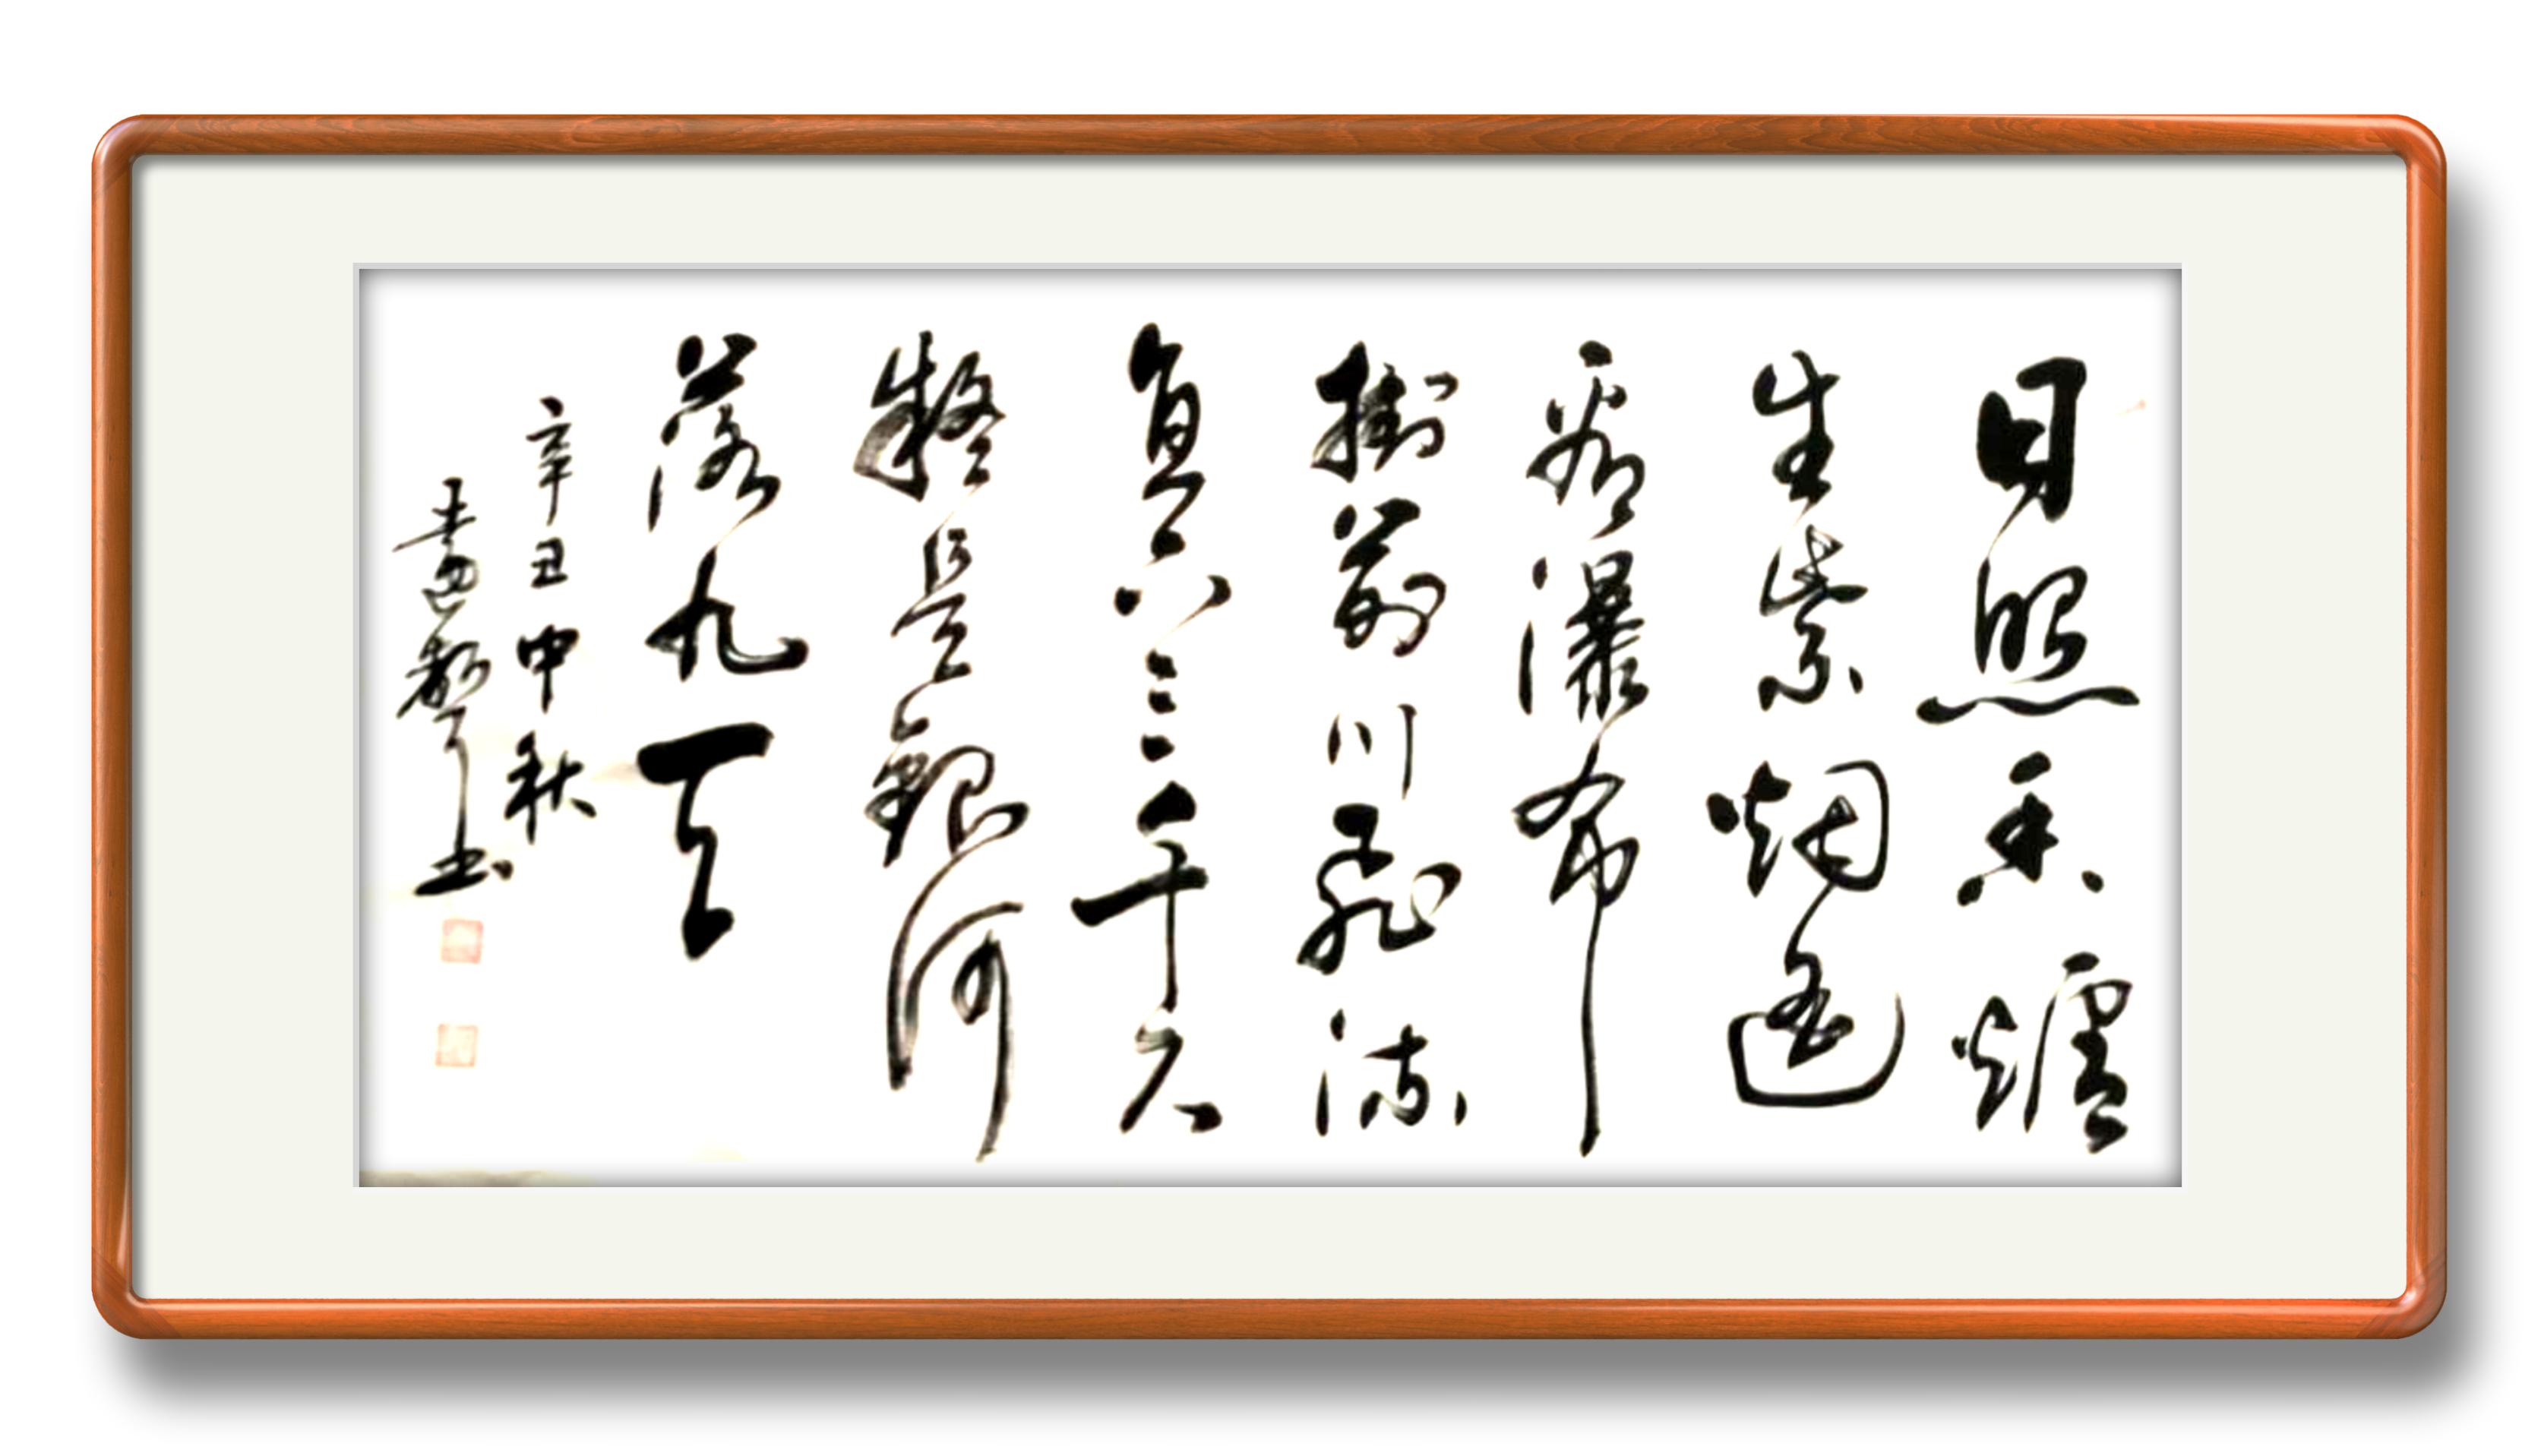 日照香爐
生紫烟遥
看瀑布
掛前川飛流
直下三千尺
疑是銀河
落九天
辛丑中秋
书